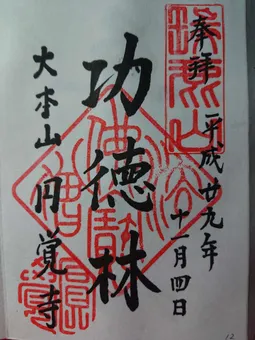 奉拝
平成廿九年
十一月四日
瑞鹿山
功徳林
大本山円覚寺